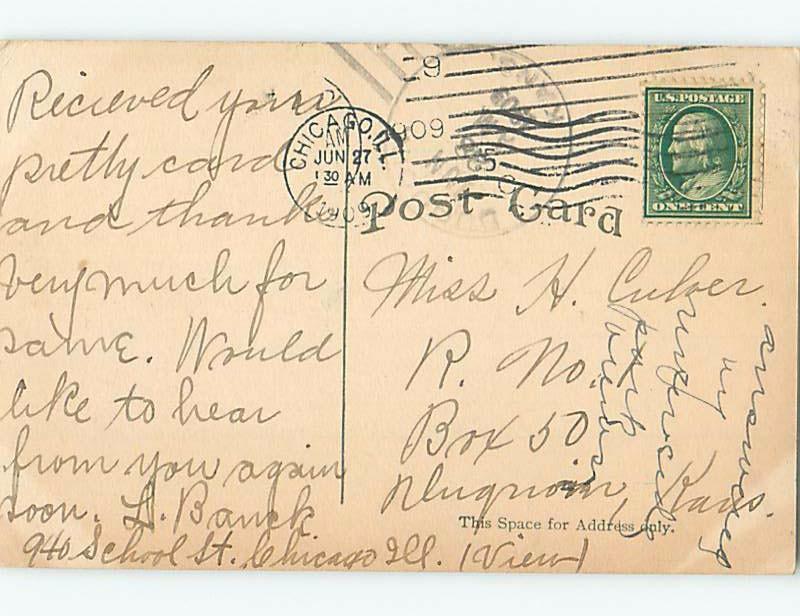 Recieved your
pretty card
and thanks
very much for
same. Would
like to hear
from you again
soon. L. Banck
940 School St. Chicago Ill. (View)
9
1909
CHICAGO, ILL.
AM
JUN 27
1 30 AM
1909
U.S. POSTAGE
ONE CENT
Post Card
Miss H. Culver.
R. No.
Box 50
Kans.
This Space for Address only.
answered